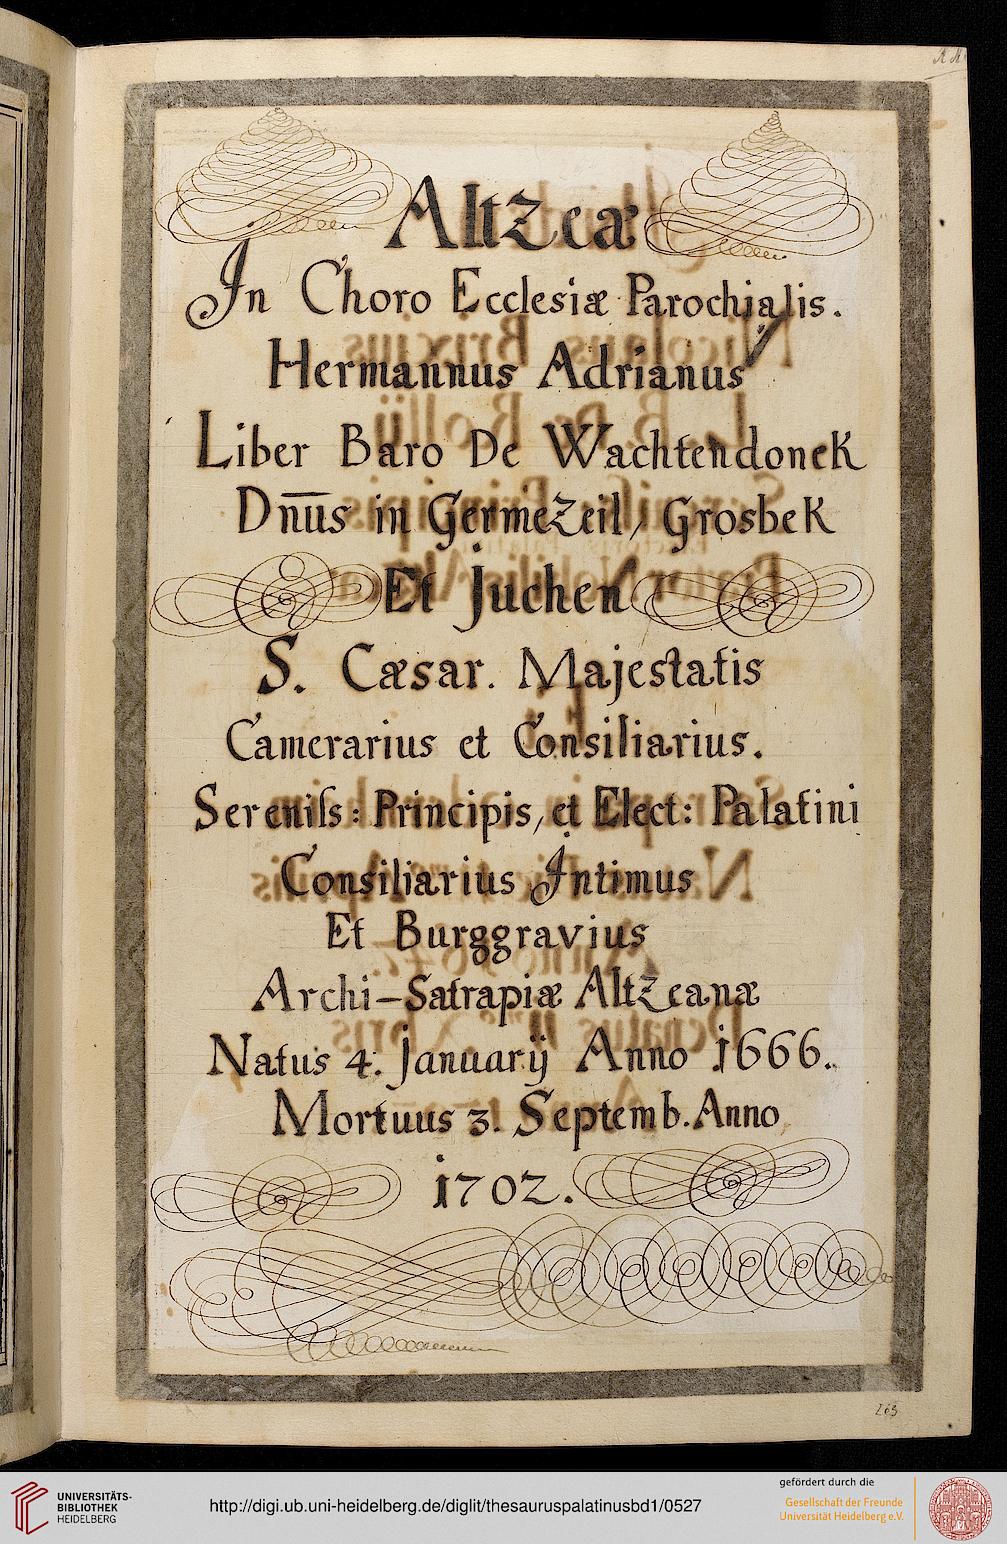 Altzeæ
In Choro Ecclesiæ Parochialis.
Hermannus Adrianus
Liber Baro De Wachtendonek
Dn̅u̅s in Germezeil, Grosbek
Et Juchen
S. Cæsar. Majestatis
Camerarius et Consiliarius.
Sereniſs: Principis, et Elect: Palatini
Consiliarius Intimus
Et Burggravius
Archi-Satrapiæ Altzeanæ
Natus 4. Januarij Anno 1666.
Mortuus 3. Septemb. Anno
1702.
263
UNIVERSITÄTS-
BIBLIOTHEK
HEIDELBERG
http://digi.ub.uni-heidelberg.de/diglit/thesauruspalatinusbd1/0527
gefördert durch die
Gesellschaft der Freunde
Universität Heidelberg e.V.